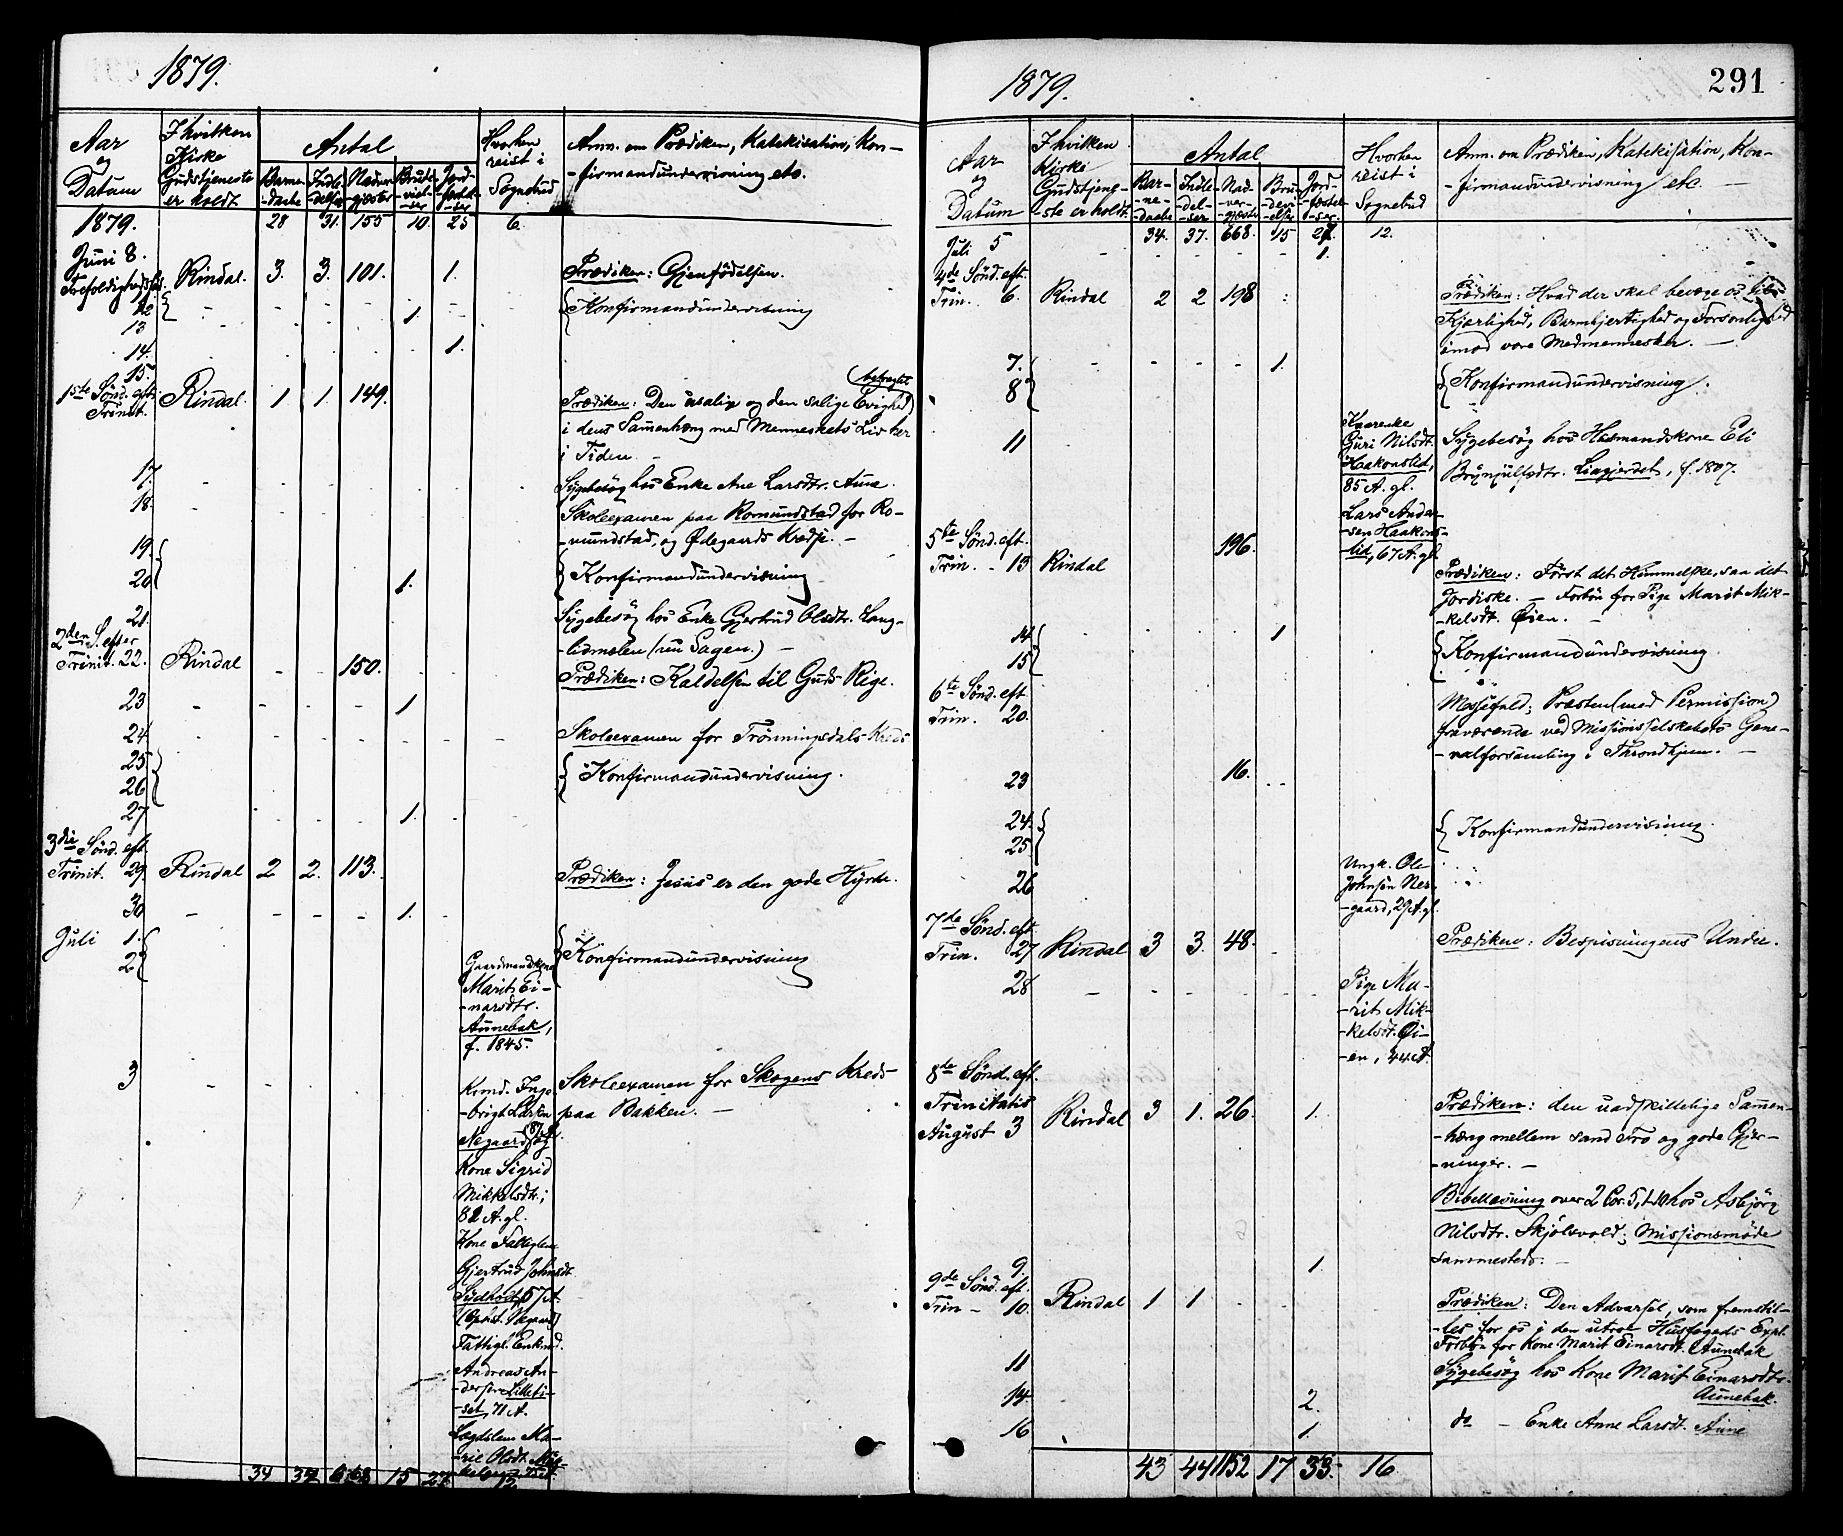 1879.
Aar
og
Datum
I hvilken
Kirke
Gudstjeneste
er holdt.
Antal
Barne-
-daabe
Indle-
delser
Nadver-
gjæster
Brude-
viel-
-ser
Jord-
fæstel-
-ser
Hvorhen
reist i
Sognebud
Anm. om Prædiken, Katekisation, Kon-
-firmandundervisning etc.
1879. 28 31. 155 10. 25 6.
Juni 8.
Trefoldighedsfest Rindal. 3. 3. 101. 1. Prædiken: Gjenfødelsen.
12 - - - - - - {Konfirmandundervisning
13 1.
14. 1.
15.
1ste Sønd. eft.
Trinit. Rindal. 1 1. 149. Prædiken: Den usalige og den salige Evighed
i dens Sammenhæng med Menneskets Liv her
i Tiden. -
17. Sygebesøg hos Enke Ane Larsdtr. Aune.
18. Skoleexamen paa Romundstad for Ro-
-mundstad, og Ødegaards Kredse. -
19. {Konfirmandundervisning
20 1.
21. Sygebesøg hos Enke Gjertrud Olsdtr. Lang-
-lidmoen (nu Sagen.) -
2den S. efter
Trinit. 22. Rindal - - 150. Prædiken: Kaldelsen til Guds Rige.
23 - - - - 1
24 - - - - - - Skoleexamen for Trønningsdals Kreds
25 {Konfirmandundervisning.
26
27 1.
3die Sønd. eft.
Trinit. 29. Rindal 2 2. 113. Prædiken: Jesus er den gode Hyrde.
30 - - - - 1.
Juli 1. {Konfirmandundervisning
2
Gaardmandskone
Marit Ei-
-narsdtr.
Aunebak,
f. 1845.
3 - - - Skoleexamen for Skogens Kreds
paa Bakken. -
Inge-
-brigt Larsen
Kone Sigrid
Mikkelsdtr.;
82 A. gl.
Kone
Gjertrud Johnsdt.
Fattigl. Enkmd.
Andreas An-
-dersen Lilleti-
-set, 71 A.
Lægdslem Ma-
-rie Olsdt.
34 37 668 15 27 12.
1879.
291
Aar
og
Datum
I hvilken
Kirke
Gudstjene-
-ste er holdt.
Antal
Bar-
-ne-
-daabe
Indle-
-del-
-ser
Nad-
-ver-
-gjæster
Bru-
-devi-
-elser
Jord-
-fæstel-
-ser.
Hvorhen
reist i
Sognebud
Anm. om Prædiken, Katekisation, Kon-
-firmandundervisning etc. -
34. 37. 668. 15 27 12.
Juli 5 - - - - - 1.
4de Sønd. eft.
Trin. 6. Rindal 2 2 198 Prædiken: Hvad der skal bevæge os til
Kjærlighed, Barmhjertighed og Forsonlighed
imod vore Medmennesker. -
7. - - - - 1.
8 {Konfirmandundervisning.
11 Sygebesøg hos Husmandskone Eli
Brynjulfsdtr. Liagjerdet, f. 1807.
Guri Nilsdt.
Haakonslid,
85 A. gl.
Lars Ander-
-sen Haakons-
-lid, 67 A. gl.
5te Sønd. eft.
Trin. - 13 Rindal 196. Prædiken: Først det Himmelske, saa det
Jordiske. - Forbøn for Pige Marit Mik-
-kelsdt. Øien. -
14 1
15 {Konfirmandundervisning.
6te Sønd. eft
Trin. 20. Messefald; Præsten (med Permission)
fraværende ved Missionsselskabets Gene-
-ralforsamling i Throndhjem. -
23 16.
24. {Konfirmandundervisning.
25.
26
Ungk. Ole
Johnsen Ner-
-gaard, 29 A. gl.
7de Sønd. eft.
Trin. 27 Rindal 3 3. 48. Prædiken: Bespisningens Under.
28 - - - -
Pige Ma-
-rit Mik-
-kelsdt. Øi-
-en, 44 A.
8de Sønd. eft.
Trinitatis
August 3 Rindal 3 1. 26. 1. Prædiken: den uadskillelige Sammen-
-hæng mellem sand Tro og gode Gjer-
-ninger. -
Bibellæsning over 2 Cor. 5, 1-10 hos Asbjørg
Nilsdtr. Skjølsvold; Missionsmøde
sammesteds. -
9. 1.
9de Sønd. eft.
Trin - 10. Rindal 1 1 Prædiken: Den Advarsel, som fremstil-
-les for os i den utroe Husfogeds Expl.
Forbøn for Kone Marit Einarsdt. Aunebak
11 Sygebesøg hos Kone Marit Einarsdtr.
Aunebak.
14. 2.
16 1. do - Enke Anne Larsdt. Aune
43 44 1152 17 33. 16